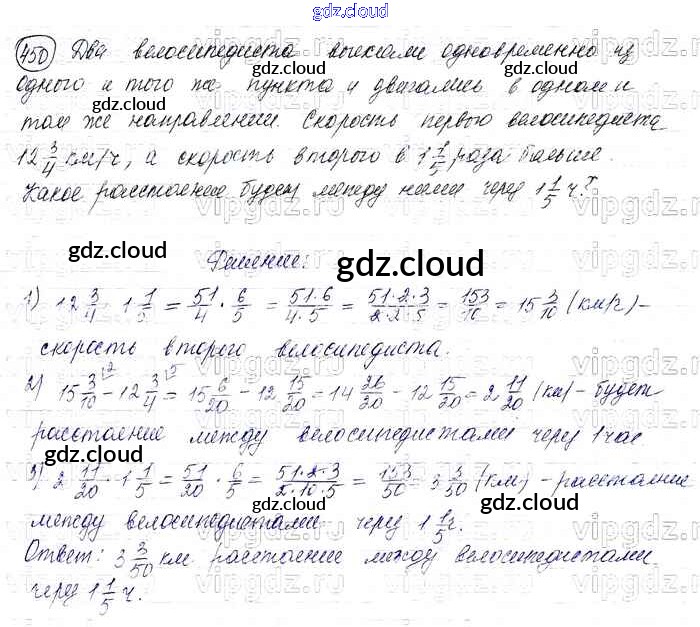 gdz.cloud
450 Два велосипедиста выехали одновременно из
одного и того же пункта и двигались в одном и
том же направлении. Скорость первого велосипедиста
12 3/4 км/ч, а скорость второго в 1 1/5 раза больше.
Какое расстояние будет между ними через 1 1/5 ч?
gdz.cloud
Решение:
gdz.cloud
gdz.cloud
1) 12 3/4 · 1 1/5 = 51/4 · 6/5 = 51·6/4·5 = 51·2·3/2·2·5 = 153/10 = 15 3/10 (км/ч) -
скорость второго велосипедиста.
2) 15 3/10 - 12 3/4 = 15 6/20 - 12 15/20 = 14 26/20 - 12 15/20 = 2 11/20 (км) - будет
расстояние между велосипедистами через 1 час
3) 2 11/20 · 1 1/5 = 51/20 · 6/5 = 51·2·3/2·10·5 = 153/50 = 3 3/50 (км) - расстояние
между велосипедистами через 1 1/5 ч.
gdz.cloud
gdz.cloud
Ответ: 3 3/50 км расстояние между велосипедистами
через 1 1/5 ч.
gdz.cloud